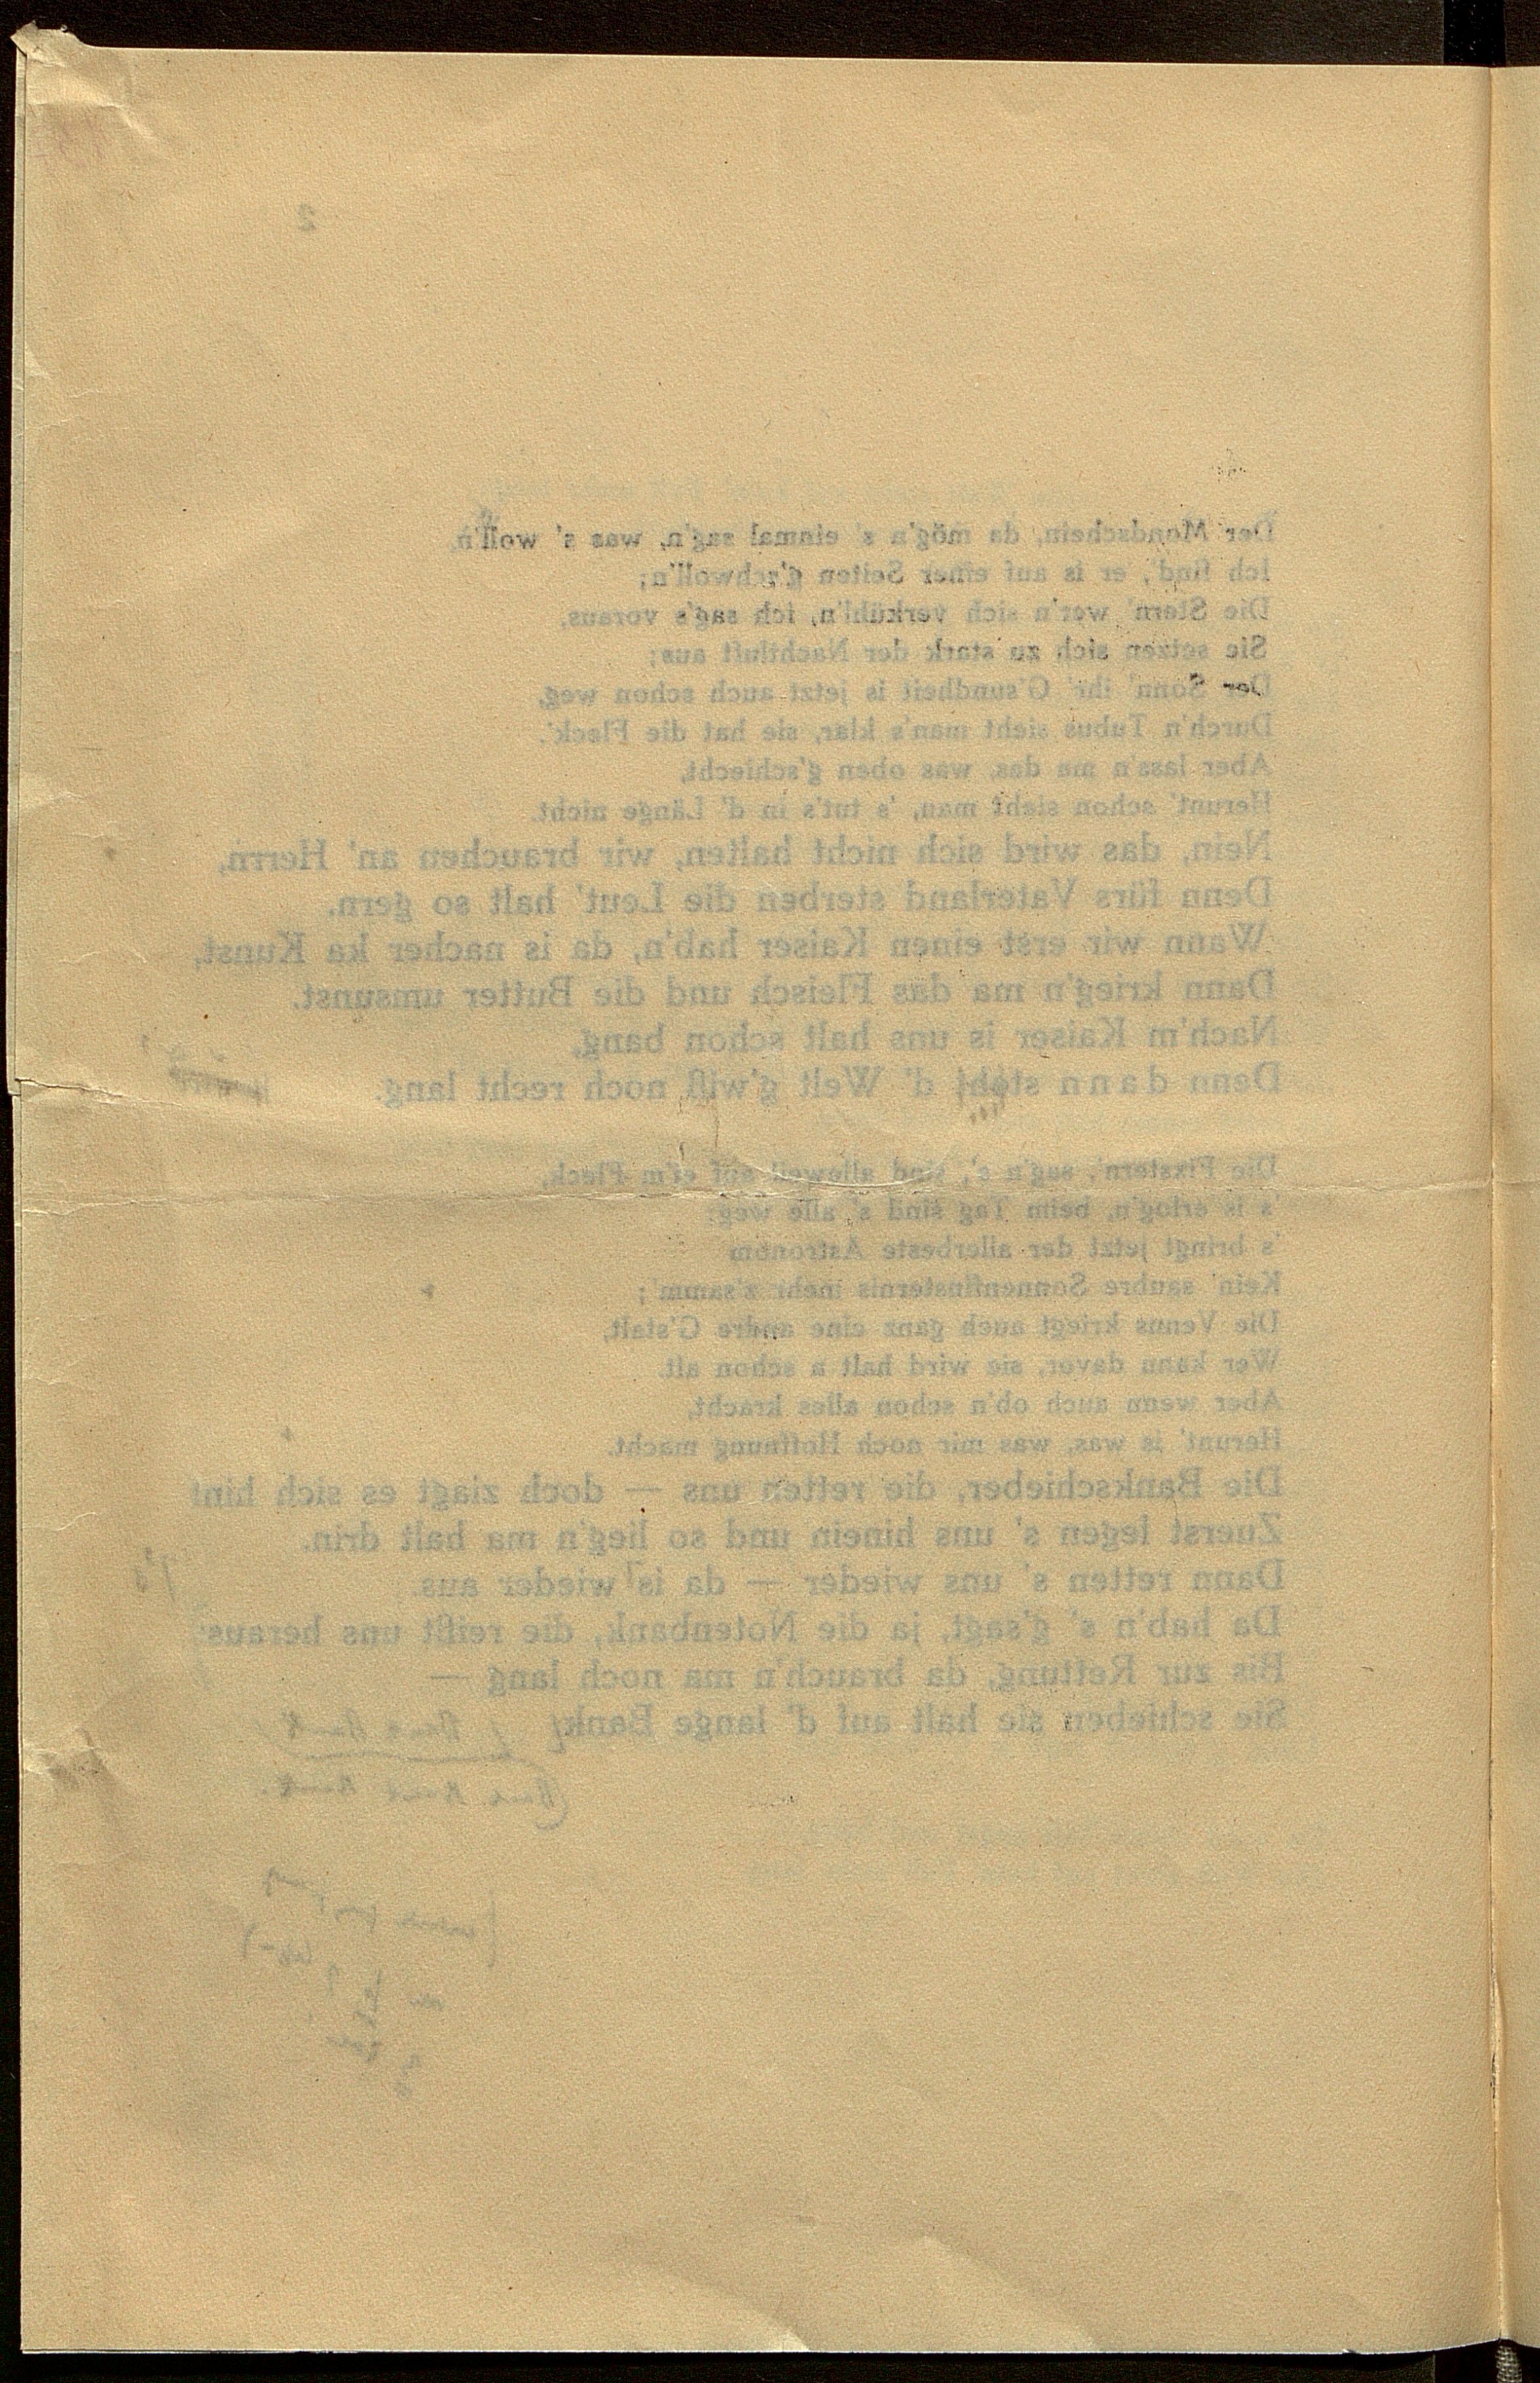 2
Der Mondschein, da mög'n s' einmal sag'n, was s' woll'n,
Ich find', er is auf einer Seiten g'schwoll'n;
Die Stern' wer'n sich verkühl'n, ich sag's voraus,
Sie setzen sich zu stark der Nachtluft aus;
Der Sonn' ihr' G'sundheit is jetzt auch schon weg,
Durch'n Tubus sieht man's klar, sie hat die Fleck'.
Aber lass'n ma das, was oben g'schiecht,
Herunt' schon sieht man, 's tut's in d' Länge nicht.
Nein, das wird sich nicht halten, wir brauchen an' Herrn,
Denn fürs Vaterland sterben die Leut' halt so gern.
Wann wir erst einen Kaiser hab'n, da is nacher ka Kunst,
Dann krieg'n ma das Fleisch und die Butter umsunst.
Nach'm Kaiser is uns halt schon bang,
Denn dann steht d' Welt g'wiß noch recht lang.
Die Fixstern', sag'n s', sind alleweil auf ei'm Fleck,
's is erlog'n, beim Tag sind s' alle weg;
's bringt jetzt der allerbeste Astronom
Kein' saubre Sonnenfinsternis mehr z'samm';
Die Venus kriegt auch ganz eine andre G'stalt,
Wer kann davor, sie wird halt a schon alt.
Aber wenn auch ob'n schon alles kracht,
Herunt' is was, was mir noch Hoffnung macht.
Die Bankschieber, die retten uns — doch ziagt es sich hin!
Zuerst legen s' uns hinein und so lieg'n ma halt drin.
Dann retten s' uns wieder — da is wieder aus.
Da hab'n s' g'sagt, ja die Notenbank, die reißt uns heraus
Bis zur Rettung, da brauch'n ma noch lang —
Sie schieben sie halt auf d' lange Bank